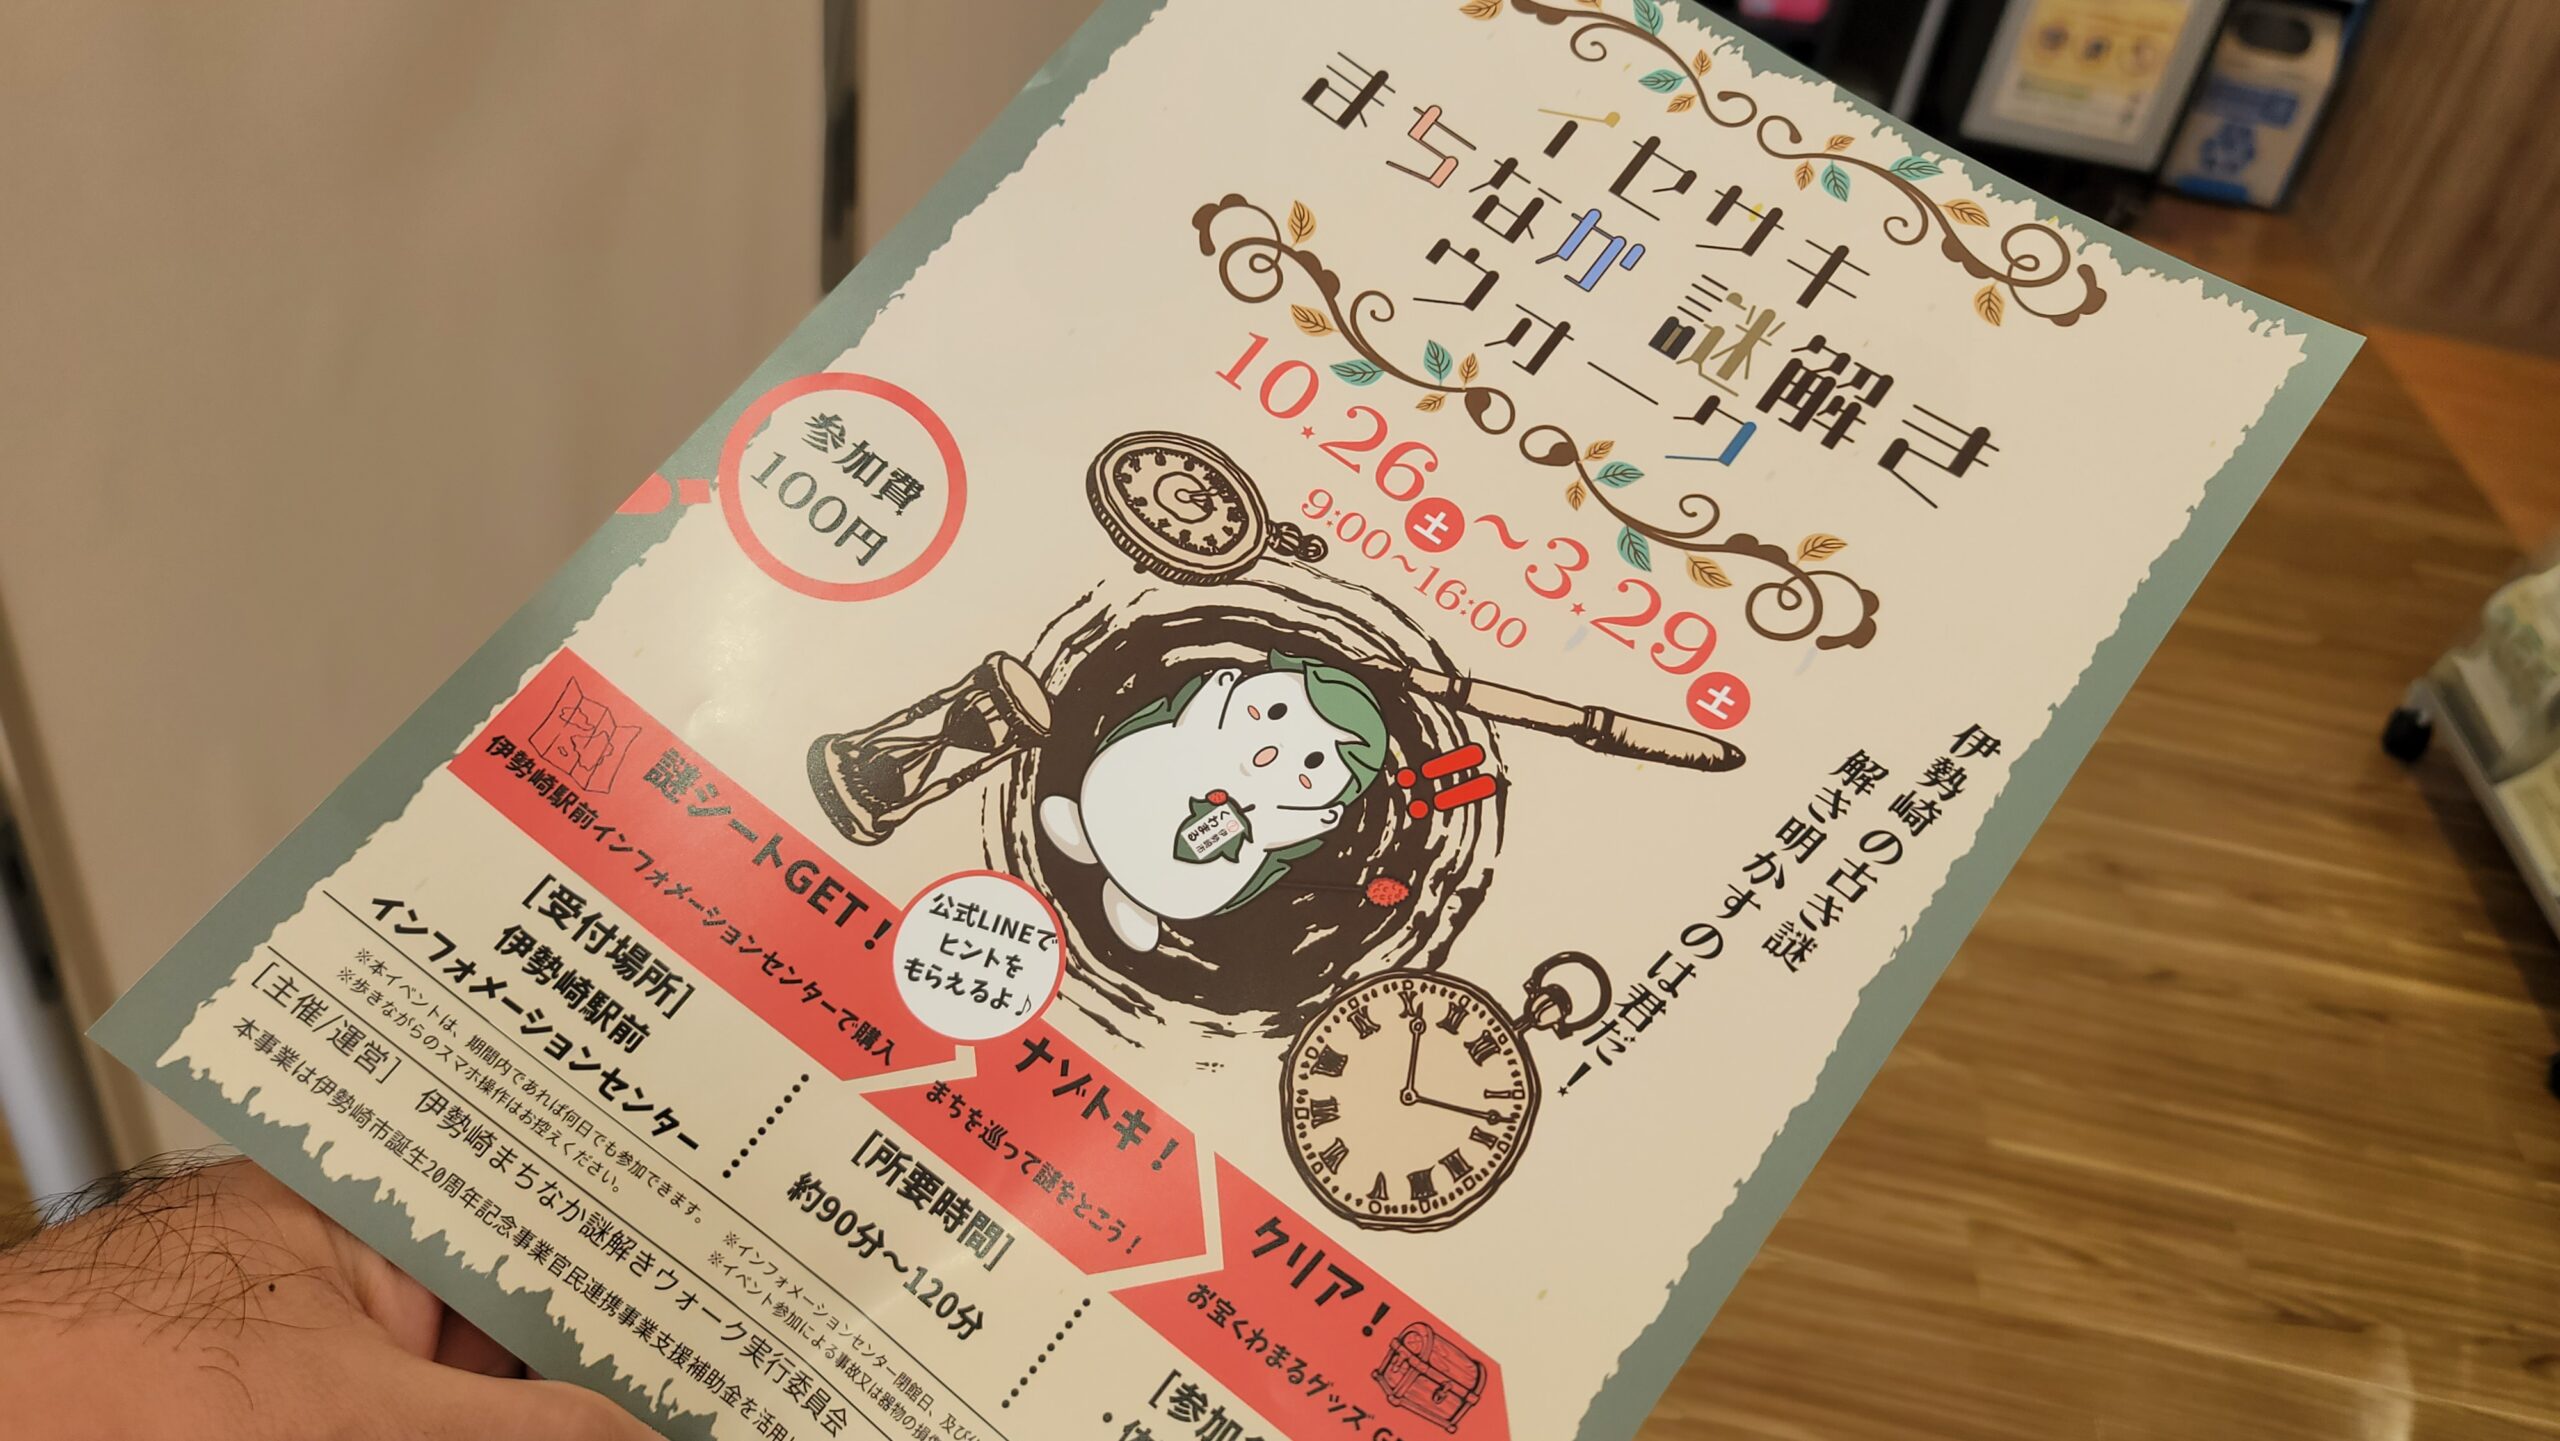 イセサキ
まちなか 謎解き
ウォーク
10.26土～3.29土
9:00~16:00
参加費
100円
伊勢崎の古き謎
解き明かすのは君だ！
伊勢崎市
くわまる
謎シートGET！
伊勢崎駅前インフォメーションセンターで購入
公式LINEで
ヒントを
もらえるよ♪
ナゾトキ！
まちを巡って謎をとこう！
クリア！
お宝くわまるグッズ
[受付場所]
伊勢崎駅前
インフォメーションセンター
[所要時間]
約90分～120分
※本イベントは、期間内であれば何日でも参加できます。
※歩きながらのスマホ操作はお控えください。
※インフォメーションセンター閉館日、及び
※イベント参加による事故又は器物の損
[主催/運営] 伊勢崎まちなか謎解きウォーク実行委員会
本事業は伊勢崎市誕生20周年記念事業官民連携事業支援補助金を活用